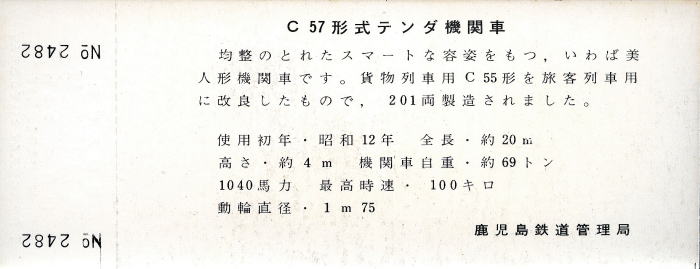 C 57形式テンダ機関車
均整のとれたスマートな容姿をもつ，いわば美
人形機関車です。貨物列車用C 55形を旅客列車用
に改良したもので，201両製造されました。
使用初年・昭和12年　全長・約20 m
高さ・約4 m　機関車自重・約69トン
1040馬力　最高時速・100キロ
動輪直径・1 m 75
鹿児島鉄道管理局
№ 2482
№ 2482